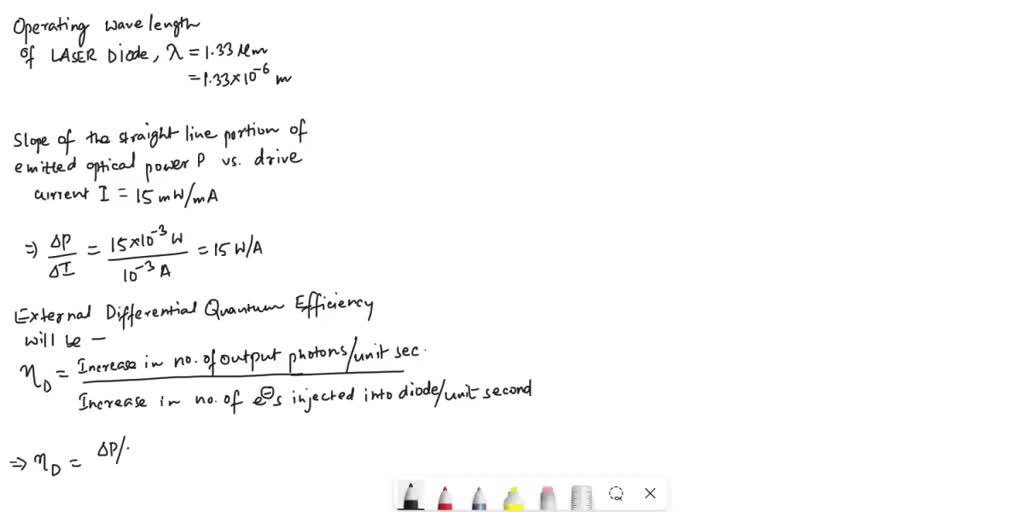 Operating wavelength
of LASER Diode, λ = 1.33 μm
= 1.33×10⁻⁶ m
Slope of the straight line portion of
emitted optical power P vs. drive
current I = 15 mW/mA
⇒ ΔP/ΔI = 15×10⁻³ W/10⁻³ A = 15 W/A
External Differential Quantum Efficiency
will be –
η_D = Increase in no. of output photons/unit sec.
Increase in no. of e⊖s injected into diode/unit second
⇒ η_D = ΔP/.